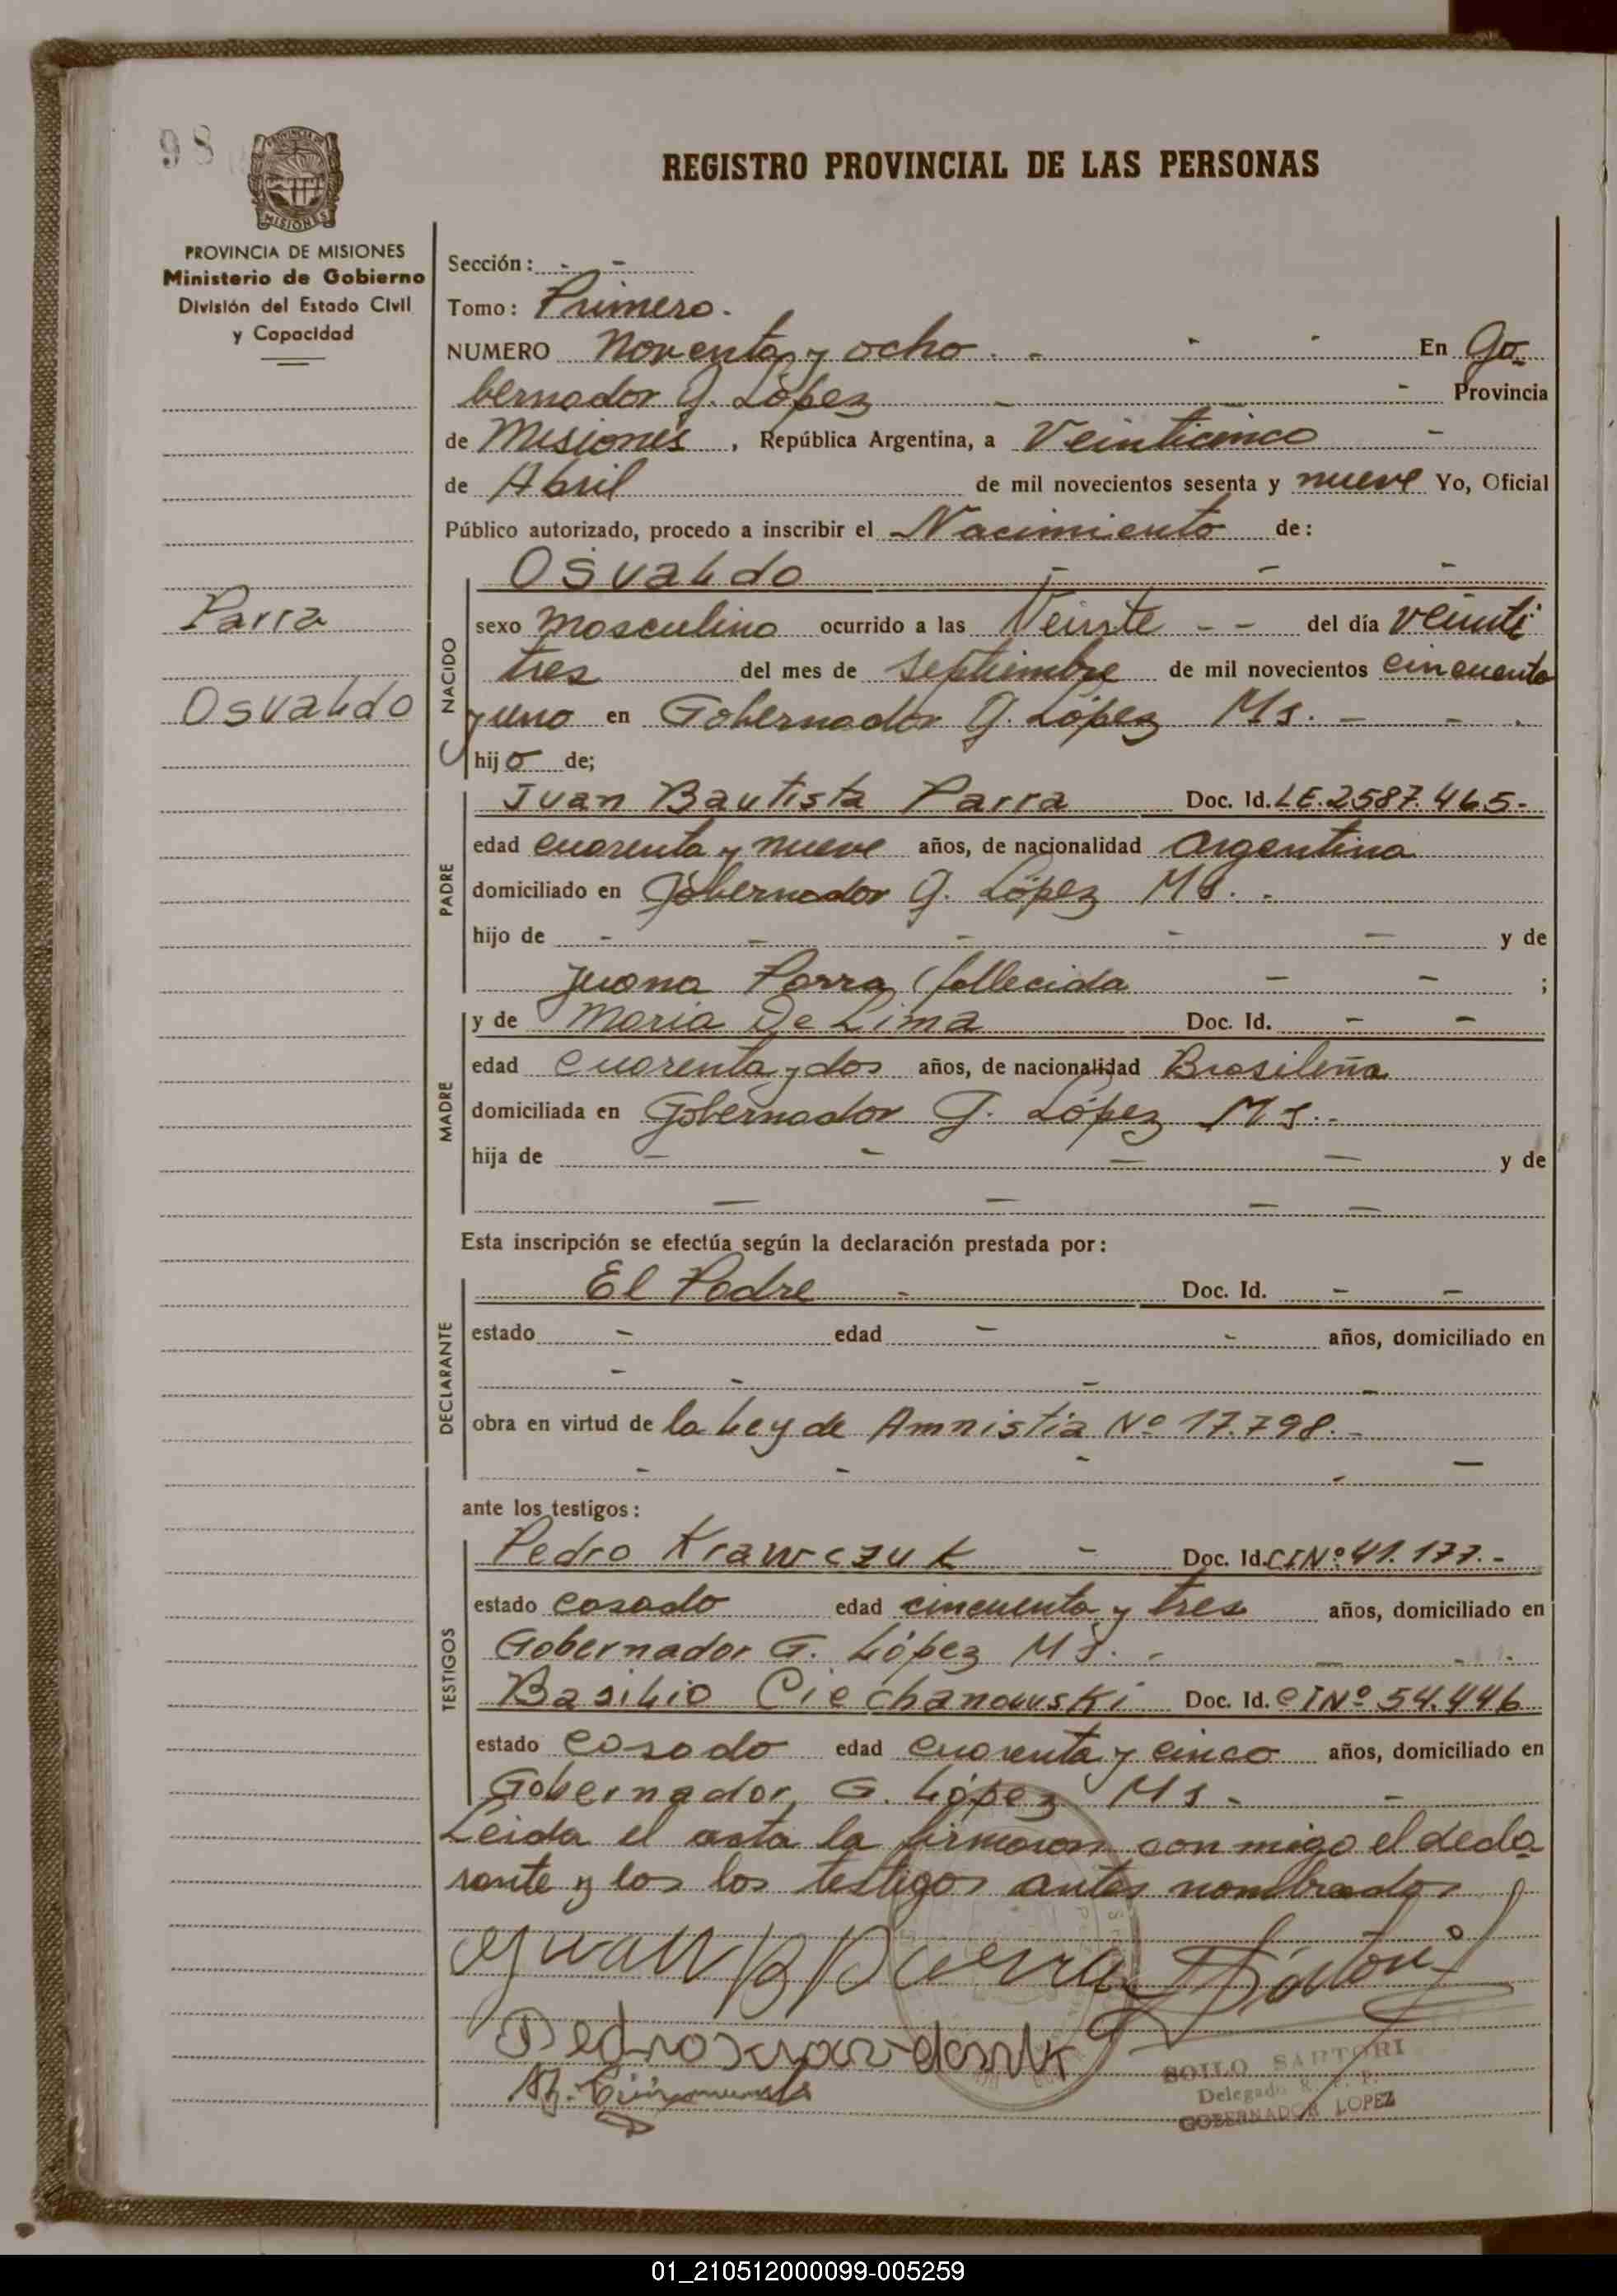 98
PROVINCIA DE
MISIONES
PROVINCIA DE MISIONES
Ministerio de Gobierno
División del Estado Civil
y Capacidad
Parra
Osvaldo
REGISTRO PROVINCIAL DE LAS PERSONAS
Sección: - -
Tomo: Primero.
NUMERO Noventa y ocho. - - - En Go
bernador G. López - - - Provincia
de Misiones, República Argentina, a Veinticinco -
de Abril de mil novecientos sesenta y nueve Yo, Oficial
Público autorizado, procedo a inscribir el Nacimiento de:
NACIDO
Osvaldo - - -
sexo masculino ocurrido a las Veinte - - del día veinti
tres del mes de Septiembre de mil novecientos cincuenta
y uno en Gobernador G. López Ms. - - .
hijo de;
PADRE
Juan Bautista Parra Doc. Id. LE. 2587.465-
edad cuarenta y nueve años, de nacionalidad Argentina
domiciliado en Gobernador G. López Ms. -
hijo de - - - - - y de
Juana Parra (fallecida - - ;
MADRE
y de Maria De Lima Doc. Id. - -
edad cuarenta y dos años, de nacionalidad Brasileña
domiciliada en Gobernador G. López Ms. -
hija de - - - - y de
- - - -
Esta inscripción se efectúa según la declaración prestada por:
DECLARANTE
El Padre - Doc. Id. - -
estado - edad - - años, domiciliado en
- - - -
obra en virtud de la Ley de Amnistia Nº 17.798. -
- - - - -
ante los testigos:
TESTIGOS
Pedro Krawczuk - Doc. Id. CI Nº 41.177.-
estado casado edad cincuenta y tres años, domiciliado en
Gobernador G. López Ms. - - -
Basilio Ciechanowski Doc. Id. CI Nº 54.446
estado casado edad cuarenta y cinco años, domiciliado en
Gobernador G. López Ms - -
Leida el acta la firmaron con migo el decla
rante y los los testigos antes nombrados
Juan B Parra
SOILO SARTORI
Delegado R. P. P.
GOBERNADOR LOPEZ
01_210512000099-005259